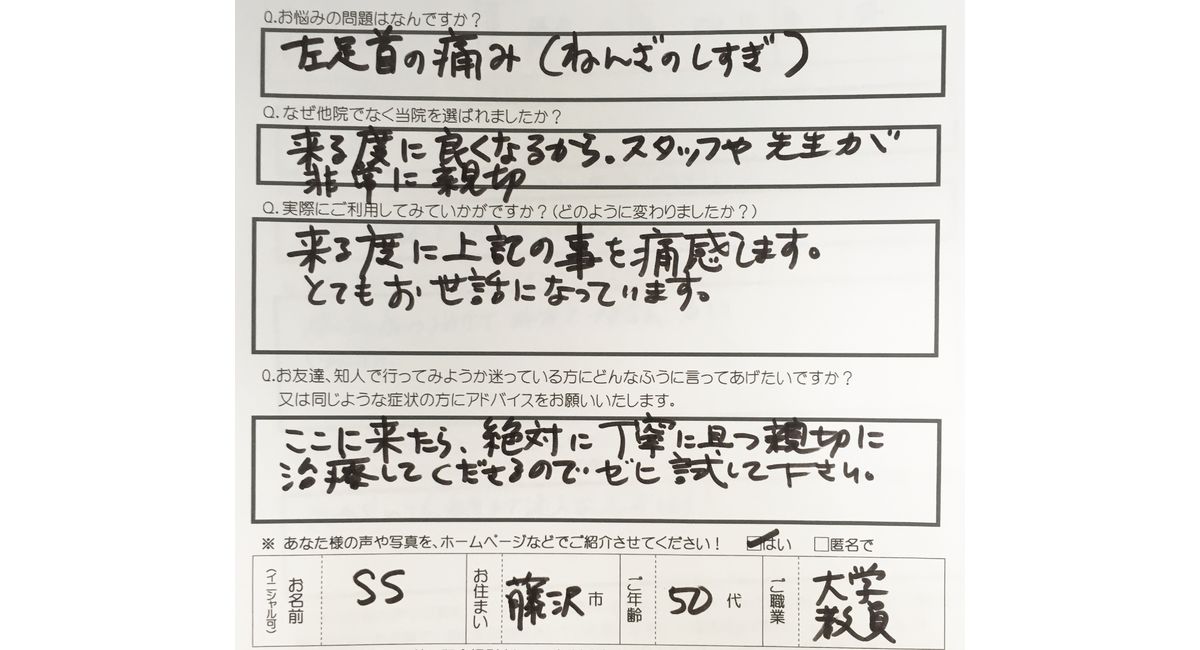 Q.お悩みの問題はなんですか？
左足首の痛み（ねんざのしすぎ）
Q.なぜ他院でなく当院を選ばれましたか？
来る度に良くなるから。スタッフや先生が
非常に親切
Q.実際にご利用してみていかがですか？（どのように変わりましたか？）
来る度に上記の事を痛感します。
とてもお世話になっています。
Q.お友達、知人で行ってみようか迷っている方にどんなふうに言ってあげたいですか？
又は同じような症状の方にアドバイスをお願いいたします。
ここに来たら、絶対に丁寧に且つ親切に
治療してくださるのでゼヒ試して下さい。
※ あなた様の声や写真を、ホームページなどでご紹介させてください！ ☑はい □匿名で
お名前
（イニシャル可）
SS
お住まい
藤沢市
ご年齢
50代
ご職業
大学
教員